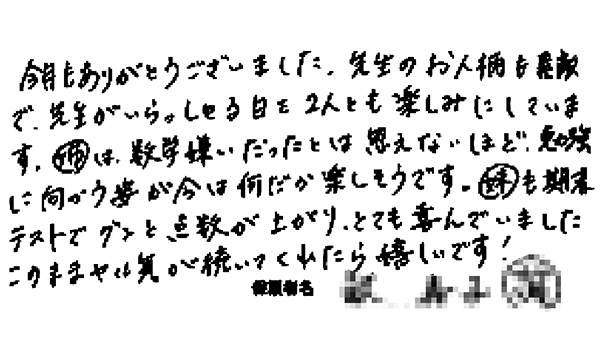 今月もありがとうございました。先生のお人柄も素敵
で、先生がいらっしゃる日を2人とも楽しみにしていま
す。は、数学嫌いだったとは思えないほど、勉強
に向かう姿が今は何だか楽しそうです。も期末
テストでグンと点数が上がり、とても喜んでいました
このままやる気が続いてくれたら嬉しいです!
保護者名